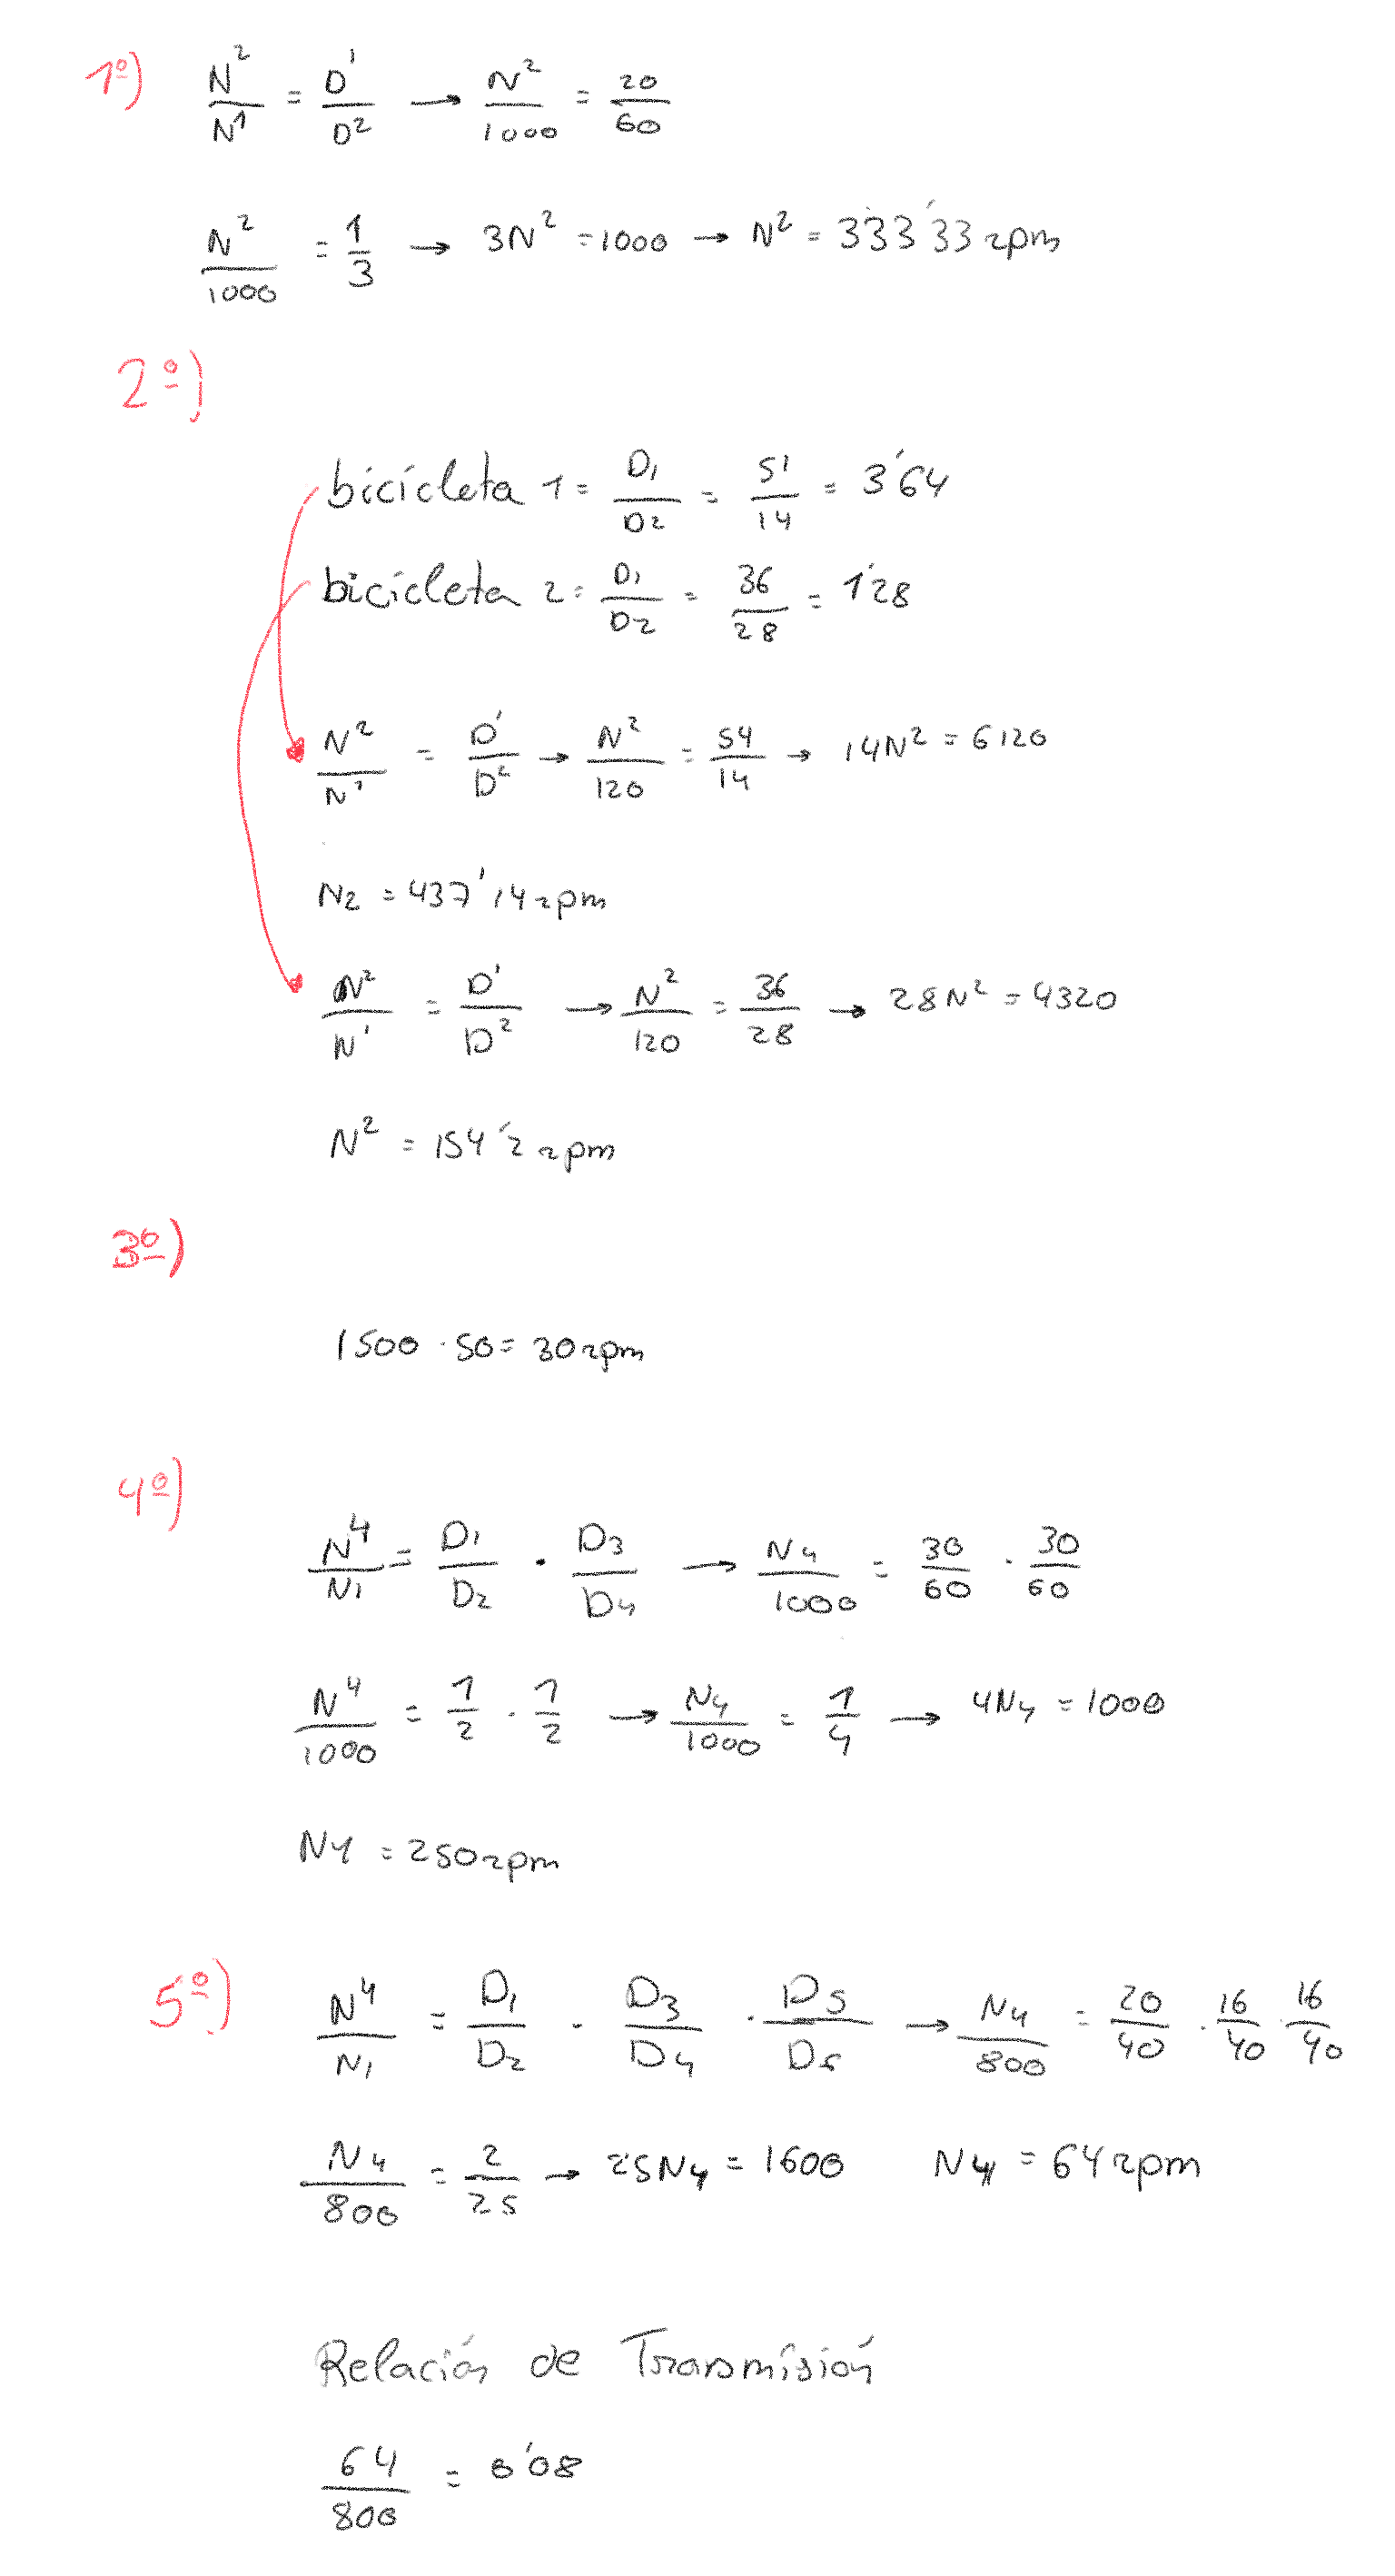 1º) N²/N¹ = D'/D² → N²/1000 = 20/60
N²/1000 = 1/3 → 3N² = 1000 → N² = 333'33 rpm
2º)
bicicleta 1 = D₁/D2 = 51/14 = 3'64
bicicleta 2 = D₁/D2 = 36/28 = 1'28
N²/N' = D'/D² → N²/120 = 54/14 → 14N² = 6120
N2 = 437'14 rpm
N²/N' = D'/D² → N²/120 = 36/28 → 28N² = 4320
N² = 154'2 rpm
3º)
1500 · 50 = 30 rpm
4º)
N⁴/N₁ = D₁/D₂ · D₃/D₄ → N₄/1000 = 30/60 · 30/60
N⁴/1000 = 1/2 · 1/2 → N₄/1000 = 1/4 → 4N₄ = 1000
N4 = 250 rpm
5º) N⁴/N₁ = D₁/D₂ · D₃/D₄ · D5/D6 → N₄/800 = 20/40 · 16/40 · 16/40
N₄/800 = 2/25 → 25N₄ = 1600 N₄ = 64 rpm
Relación de Transmisión
64/800 = 0'08